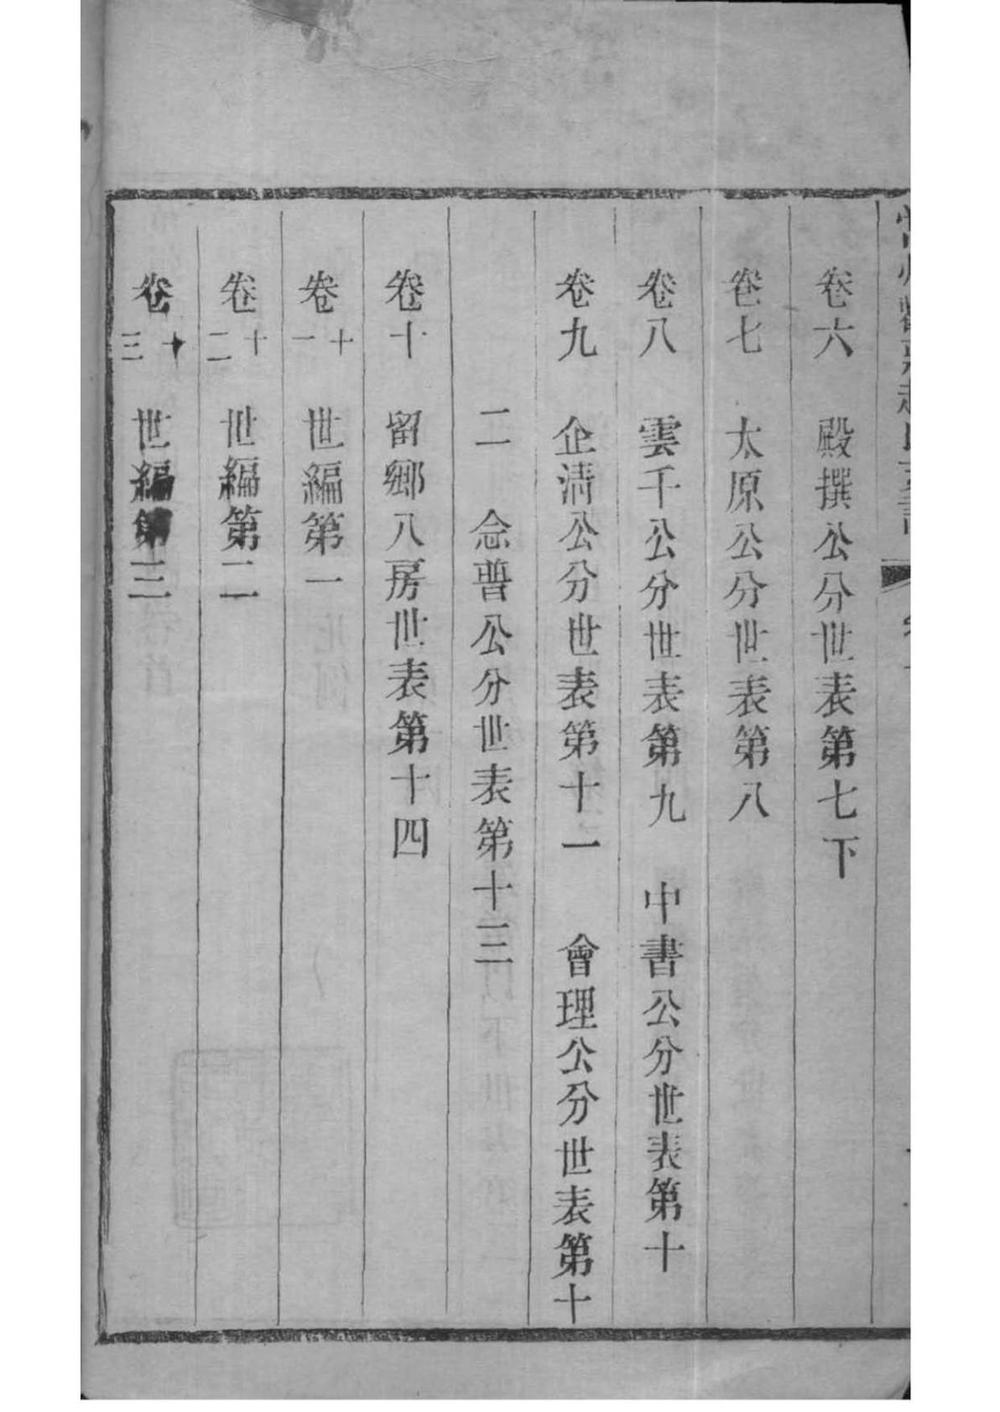 卷六　殿撰公分世表第七下
卷七　太原公分世表第八
卷八　雲千公分世表第九　中書公分世表第十
卷九　企清公分世表第十一　會理公分世表第十
二　念普公分世表第十三
卷十　留鄉八房世表第十四
卷十一　世編第一
卷十二　世編第二
卷十三　世編第三